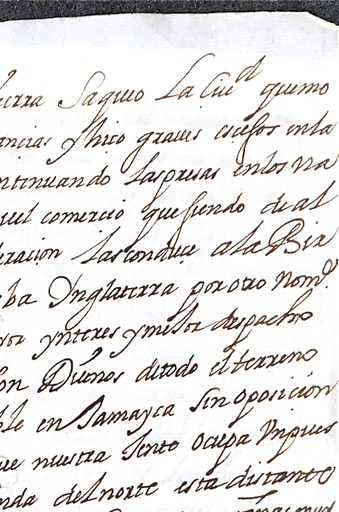 ierra Saqueo La Ciud quemo
ancias y hiço graues excesos en la
ntinuando las presas en los na
quel comercio que siendo de al
eracion las conduce a la Bir
eba Ynglaterra por otro Nome
yor ynteres y mejor despacho
on Dueños de todo el terreno
ble en Jamayca sin oposicion
ue nuestra Jente ocupa Vnpues
nda del norte esta distante